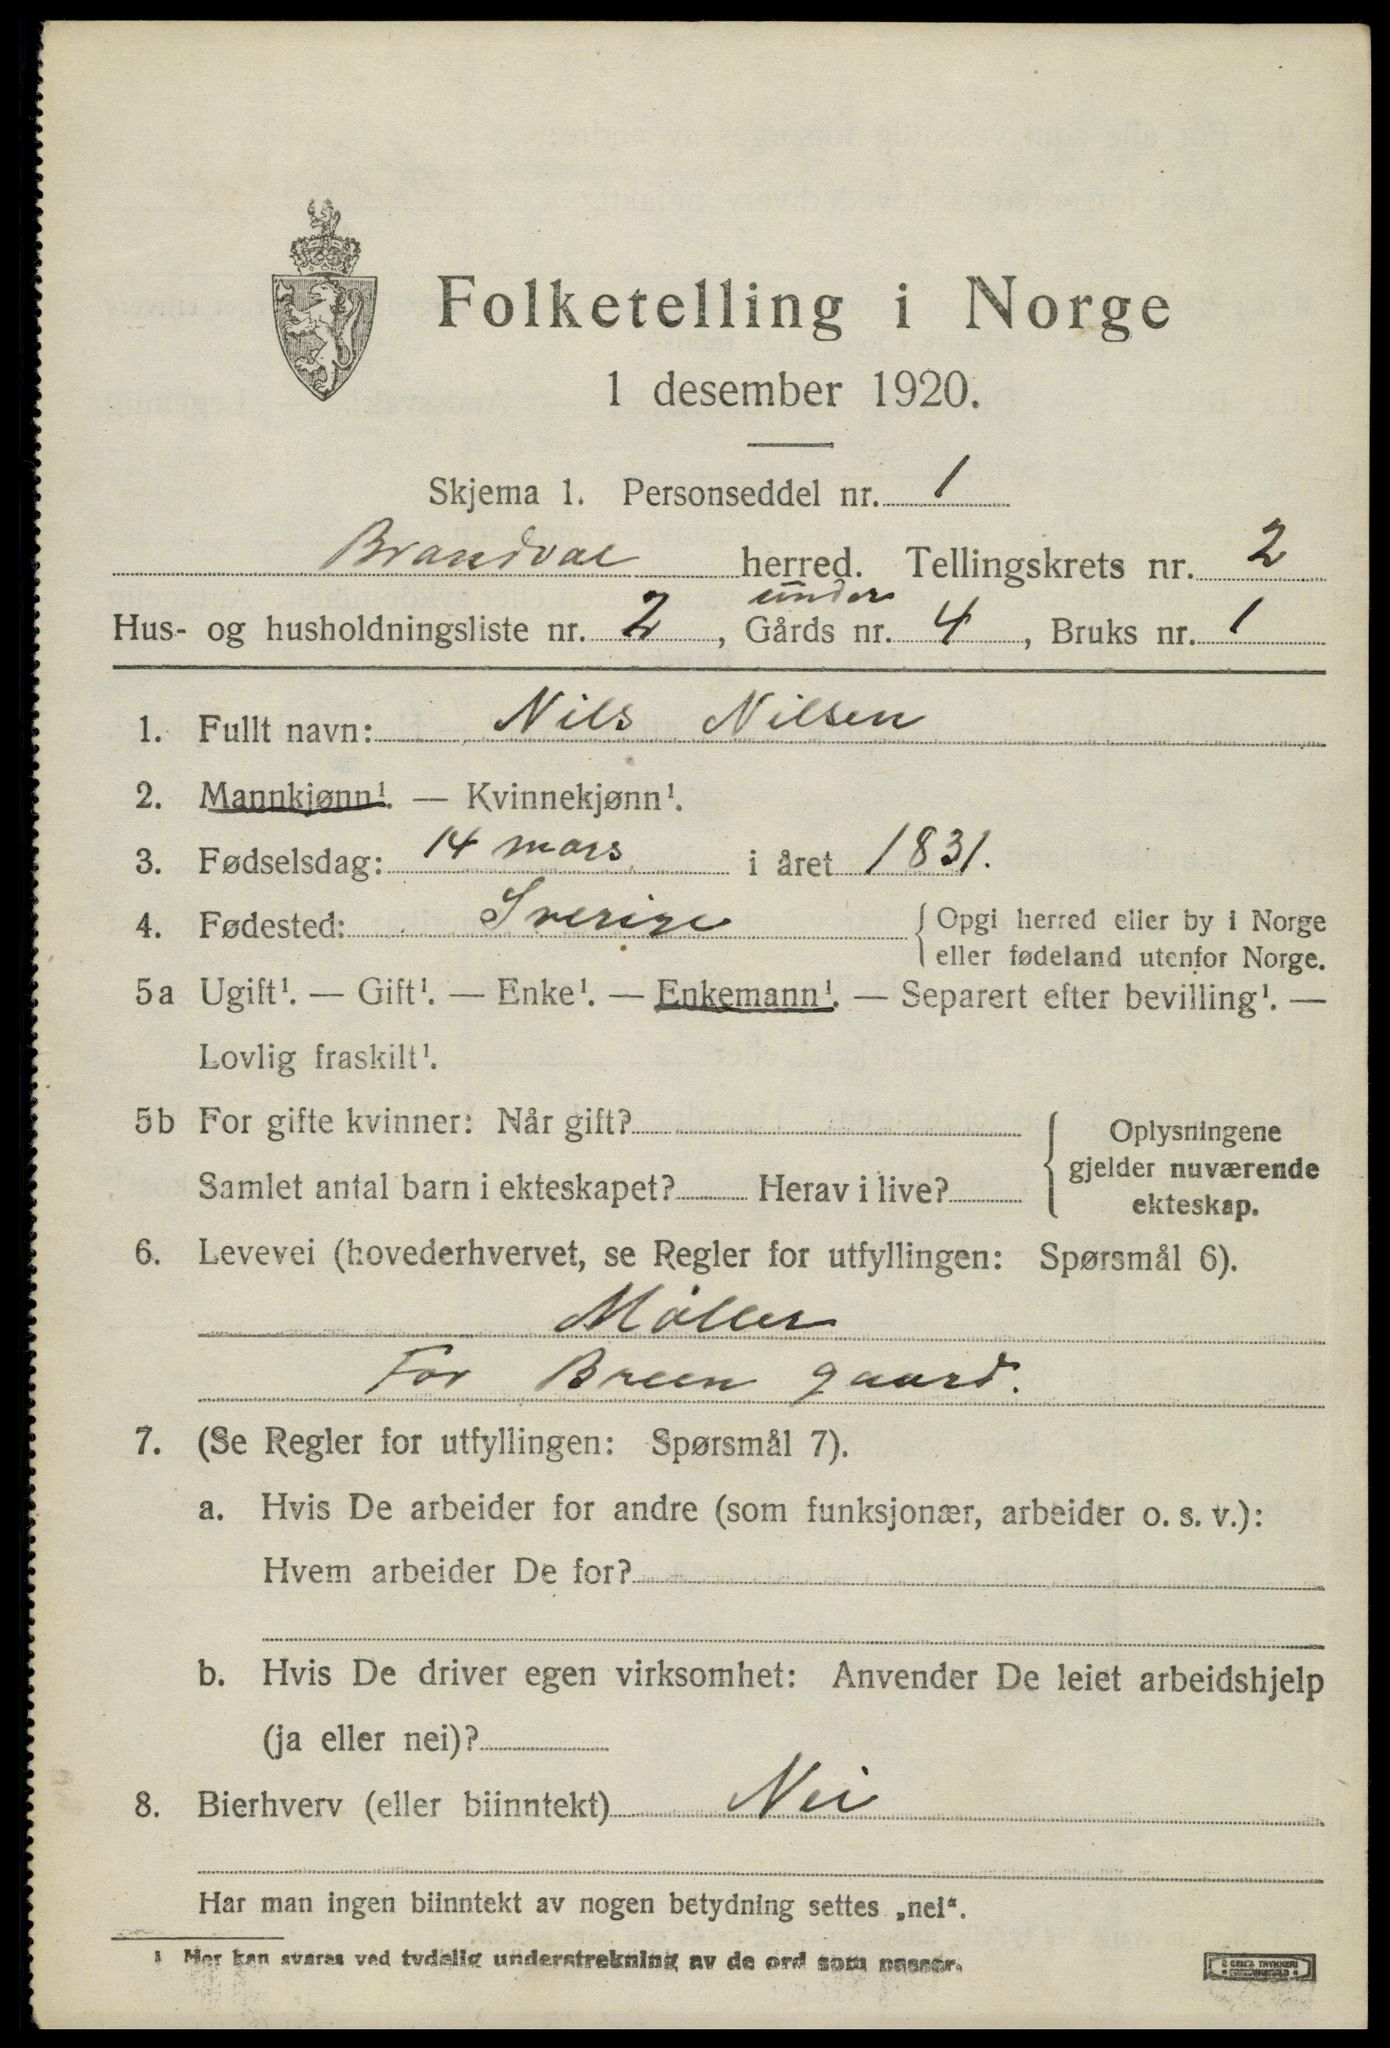 Folketelling i Norge
1 desember 1920.
Skjema 1. Personseddel nr. 1
Brandval herred. Tellingskrets nr. 2
under
Hus- og husholdningsliste nr. 2, Gårds nr. 4, Bruks nr. 1
1. Fullt navn: Nils Nilsen
2. Mannkjønn¹. — Kvinnekjønn¹.
3. Fødselsdag: 14 mars i året 1831.
4. Fødested: Sverige { Opgi herred eller by i Norge
eller fødeland utenfor Norge.
5a Ugift¹. — Gift¹. — Enke¹. — Enkemann¹. — Separert efter bevilling¹. —
Lovlig fraskilt¹.
5b For gifte kvinner: Når gift?
Samlet antal barn i ekteskapet? Herav i live?
{ Oplysningene
gjelder nuværende
ekteskap.
6. Levevei (hovederhvervet, se Regler for utfyllingen: Spørsmål 6).
Møller
For Breen gaard.
7. (Se Regler for utfyllingen: Spørsmål 7).
a. Hvis De arbeider for andre (som funksjonær, arbeider o. s. v.):
Hvem arbeider De for?
b. Hvis De driver egen virksomhet: Anvender De leiet arbeidshjelp
(ja eller nei)?
8. Bierhverv (eller biinntekt) Nei
Har man ingen biinntekt av nogen betydning settes „nei“.
¹ Her kan svares ved tydelig understrekning av de ord som passer.